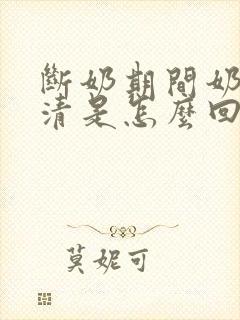 斷奶期間奶
清是怎麼回
莫妮可